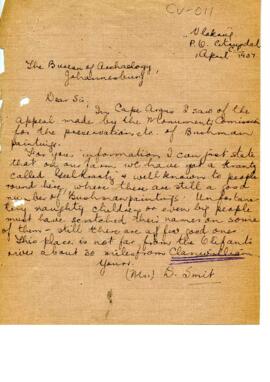 CV-011
Vlaking
P.O. Citrusdal
1 April 1937
The Bureau of Archaeology,
Johannesburg
Dear Sir,
In Cape Argus I saw of the
appeal made by the Monuments Commission
for the preservation etc. of Bushman
paintings.
For your information I can just state
that on our farm we have got a krantz
called & well known to people
round here, where there are still a good
number of Bushmanpaintings. Unfortuna-
tely naughty children or even big people
must have scratched their names on some
of them - still there are a few good ones
This place is not far from the Olifants
river about 30 miles from Clanwilliam
Yours.
(Mrs) D. Smit